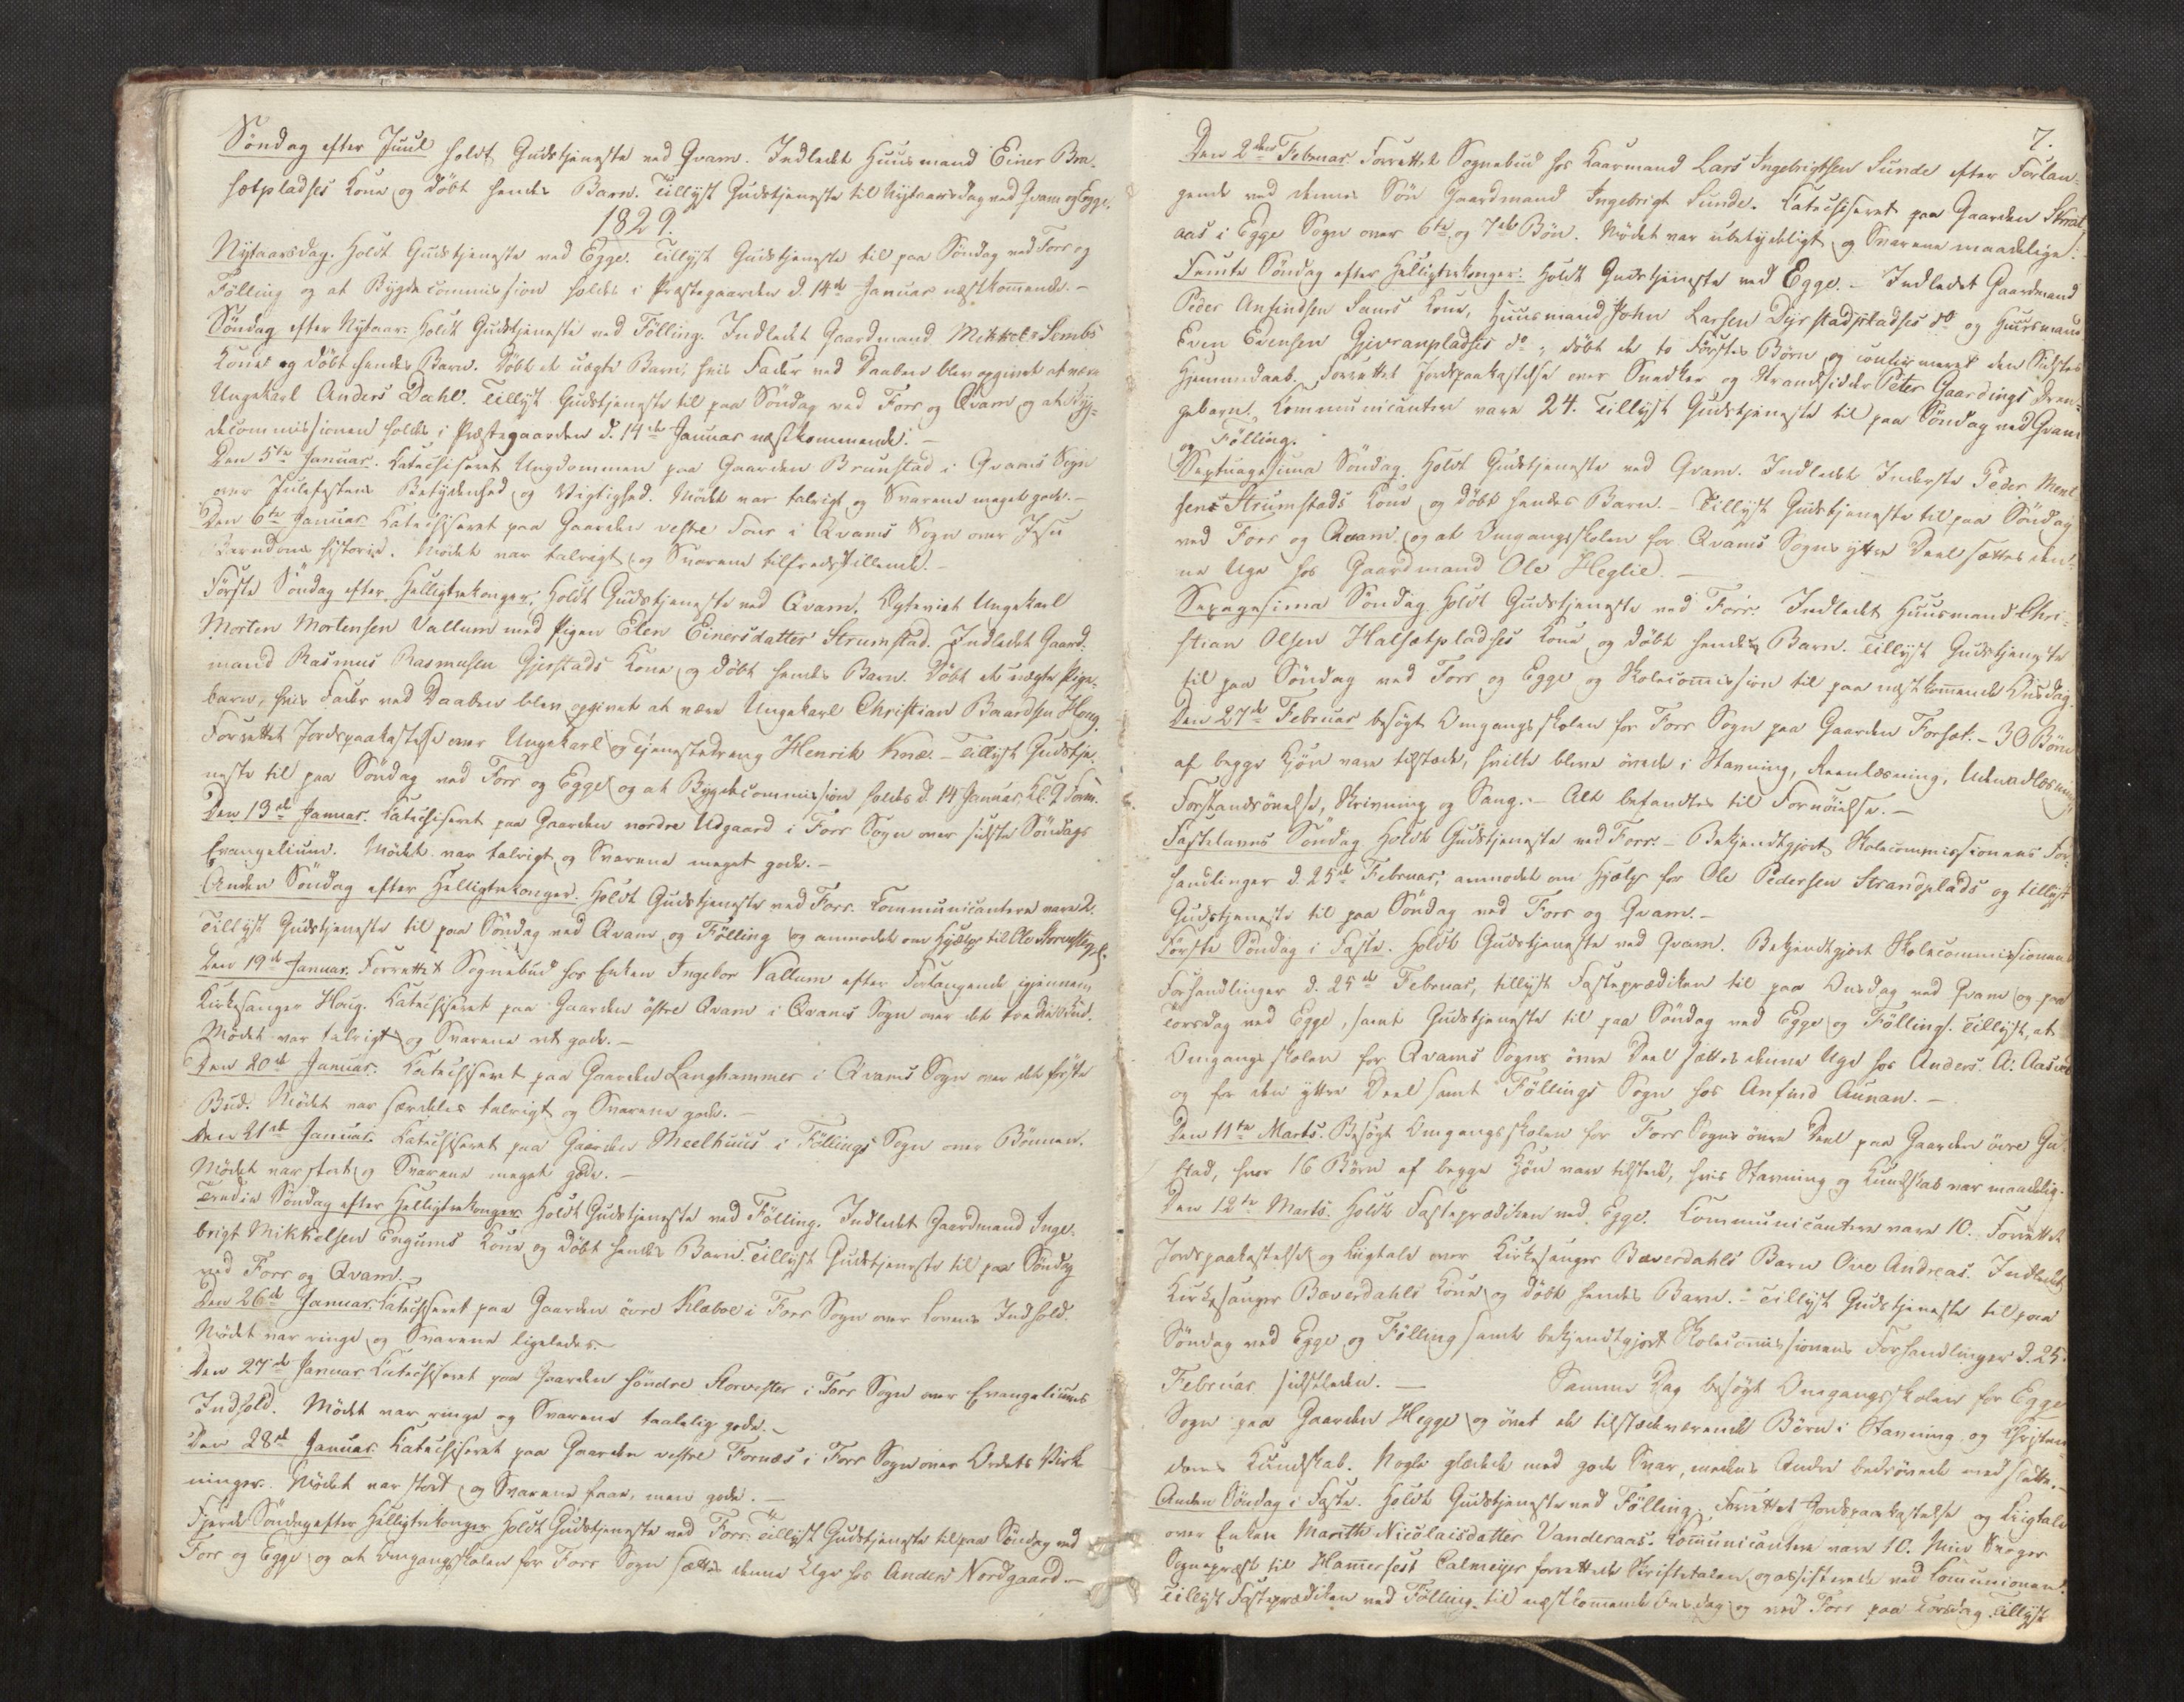 Söndag efter Juul holdt Gudstjeneste ved Qvam. Indledet Huusmand Einer Bra-
sætpladses Kone og döbt hendes Barn. Tillyst Gudstjeneste til Nytaarsdag ved Qvam og Egge.
1829.
Nytaarsdag. Holdt Gudstjeneste ved Egge. Tillyst Gudstjeneste til paa Söndag ved Forr og
Fölling og at Bygdecommission holdes i Præstegaarden d. 14de Januar næstkommende. -
Söndag efter Nytaar: Holdt Gudstjeneste ved Fölling. Indledet Gaardmand Mikkel Sembs
Kone og döbt hendes Barn. Döbt et uægte Barn, hvis Fader ved Daaben blev opgivet at være
Ungekarl Anders Dahl. Tillyst Gudstjeneste til paa Söndag ved Forr og Qvam og at Byg-
decommissionen holdes i Præstegaarden d. 14de Januar næstkommende. -
Den 5te Januar. Katechiseret Ungdommen paa Gaarden Brunstad i Qvams Sogn
over Julefestens Betydenhed og Vigtighed. Mödet var talrigt og Svarene meget gode. -
Den 6te Januar Katechiseret paa Gaarden vestre Four i Qvams Sogn over Jesu
Barndoms Historie. Mödet var talrigt og Svarene tilfredsstillende. -
Förste Söndag efter Helligtrekonger. Holdt Gudstjeneste ved Qvam. Ægteviet Ungekarl
Morten Mortensen Vallum med Pigen Elen Einersdatter Strumstad. Indledet Gaard-
mand Rasmus Rasmusen Gjerstads Kone og döbt hendes Barn. Döbt et uægte Pige-
barn, hvis Fader ved Daaben blev opgivet at være Ungekarl Christian Baardsen Houg.
Forrettet Jordpaakastelse over Ungekarl og Tjenestedreng Henrik Knæ. - Tillyst Gudstje-
neste til paa Söndag ved Forr og Egge og at Bygdecommission holdes d. 14 Januar, Kl. 9 Form.
Den 13de Januar. Katechiseret paa Gaarden nordre Udgaard i Forr Sogn over sidste Söndags
Evangelium. Mödet var talrigt og Svarene meget gode. -
Anden Söndag efter Helligtrekonger. Holdt Gudstjeneste ved Forr. Communicantere vare 2.
Tillyst Gudstjeneste til paa Söndag ved Qvam og Fölling og anmodet om Hjælp til Ole
Den 19de Januar. Forrettet Sognebud hos Enken Ingebor Vallum efter Forlangende igjennem
Kirkesanger Houg. Katechiseret paa Gaarden östre Qvam i Qvams Sogn over det tredie Bud.
Mödet var talrigt og Svarene ret gode. -
Den 20de Januar. Katechiseret paa Gaarden Langhammer i Qvams Sogn over det förste
Bud. Mödet var særdeles talrigt og Svarene gode. -
Den 21de Januar. Katechiseret paa Gaarden Meelhuus i Föllings Sogn over Bönnen.
Mödet var stort og Svarene meget gode. -
Tredie Söndag efter Helligtrekonger Holdt Gudstjeneste ved Fölling. Indledet Gaardmand Inge-
brigt Mikkelsen Engums Kone og döbt hendes Barn. Tillyst Gudstjeneste til paa Söndag
ved Forr og Qvam. -
Den 26de Januar. Katechiseret paa Gaarden övre Klæboe i Forr Sogn over Lovens Indhold.
Mödet var ringe og Svarene ligeledes. -
Den 27de Januar Katechiseret paa Gaarden söndre i Forr Sogn over Evangeliums
Indhold. Mödet var ringe og Svarene taalelig gode. -
Den 28de Januar Katechiseret paa Gaarden vestre Fornæs i Forr Sogn over Ordets Virk-
ninger. Mödet var stort og Svarene faae, men gode. -
Fjerde Söndag efter Helligtrekonger Holdt Gudstjeneste ved Forr. Tillyst Gudstjeneste til paa Söndag ved
Forr og Egge og at Omgangsskolen for Forr Sogn sættes denne Uge hos Anders Nordgaard. -
7.
Den 2den Februar Forrettet Sognebud hos Kaarmand Lars Ingebrigtsen Sunde efter Forlan-
gende ved dennes Sön Gaardmand Ingebrigt Sunde. Katechiseret paa Gaarden
aas i Egge Sogn over 6te og 7de Bön. Mödet var ubetydeligt og Svarene maadelige.
Femte Söndag efter Helligtrekonger. Holdt Gudstjeneste ved Egge. - Indledet Gaardmand
Peder Anfindsen Sams Kone, Huusmand John Larsen Dyrstadpladses do og Huusmand
Even Evensen Gjevranpladses do; döbt de to Förstes Börn og confirmeret den Sidstes
Hjemmedaab. Forrettet Jordpaakastelse over Snedker og Strandsidder Peter Gaardings Dren-
gebarn. Kommunicantere vare 24. Tillyst Gudstjeneste til paa Söndag ved Qvam
og Fölling.
Septuagesima Söndag. Holdt Gudstjeneste ved Qvam. Indledet Inderste Peder
sens Strumstads Kone og döbt hendes Barn. - Tillyst Gudstjeneste til paa Söndag
ved Forr og Qvam og at Omgangsskolen for Qvams Sogns ytre Deel sættes den-
ne Uge hos Gaardmand Ole Heglie. -
Sexagesima Söndag Holdt Gudstjeneste ved Forr. Indledet Huusmand Chri-
stian Olsen Halsætpladses Kone og döbt hendes Barn. Tillyst Gudstjeneste
til paa Söndag ved Forr og Egge og Skolecommission til paa næstkommende Onsdag.
Den 27de Februar besögt Omgangsskolen for Forr Sogn paa Gaarden Forset. - 30 Börn
af begge Kjön vare tilstæde, hvilke bleve övede i Stavning, Reenlæsning, Udenadlæsning
Forstandsövelse, Skrivning og Sang. - Alt befandtes til Fornöielse. -
Fastelavns Söndag Holdt Gudstjeneste ved Forr. - Bekjendtgjort Skolecommissionens For-
handlinger d. 25de Februar, anmodet om Hjælp for Ole Pedersen Strandplads og tillyst
Gudstjeneste til paa Söndag ved Forr og Qvam. -
Förste Söndag i Faste. Holdt Gudstjeneste ved Qvam. Bekjendtgjort Skolecommissionens
Forhandlinger d. 25de Februar, tillyst Fasteprædiken til paa Onsdag ved Qvam og paa
Torsdag ved Egge, samt Gudstjeneste til paa Söndag ved Egge og Fölling. Tillyst, at
Omgangsskolen for Qvams Sogns övre Deel sættes denne Uge hos Anders A.
og for den ytre Deel samt Föllings Sogn hos Anfind Aunan. -
Den 11te Marts. Besögt Omgangsskolen for Forr Sogns övre Deel paa Gaarden övre Gu-
stad, hvor 16 Börn af begge Kjön vare tilstede, hvis Stavning og Kundskab var maadelig.
Den 12te Marts. Holdt Fasteprædiken ved Egge. Communicantere vare 10. Forrettet
Jordpaakastelse og Liigtale over Kirkesanger Bæverdahls Barn Ove Andreas. Indledet
Kirkesanger Bæverdahls Kone og döbt hendes Barn. - Tillyst Gudstjeneste til paa
Söndag ved Egge og Fölling samt bekjendtgjort Skolecommissionens Forhandlinger d. 25
Februar sidstleden. - Samme Dag besögt Omgangsskolen for Egge
Sogn paa Gaarden Hegge og övet de tilstædeværende Börn i Stavning og Christen-
doms Kundskab. Nogle glædede med gode Svar, medens Andre bedrövede med slette. -
Anden Söndag i Faste. Holdt Gudstjeneste ved Fölling. Forrettet Jordpaakastelse og Liigtale
over Enken Marith Nicolaisdatter Vanderaas. Kommunicantere vare 10. Min Svoger
Sognepræst til Hamerfest Calmeyer forrettede Skriftetalen og assisterede ved Communionen.
Tillyst Fasteprædiken ved Fölling til næstkommende Onsdag og ved Forr paa Torsdag. Tillyst